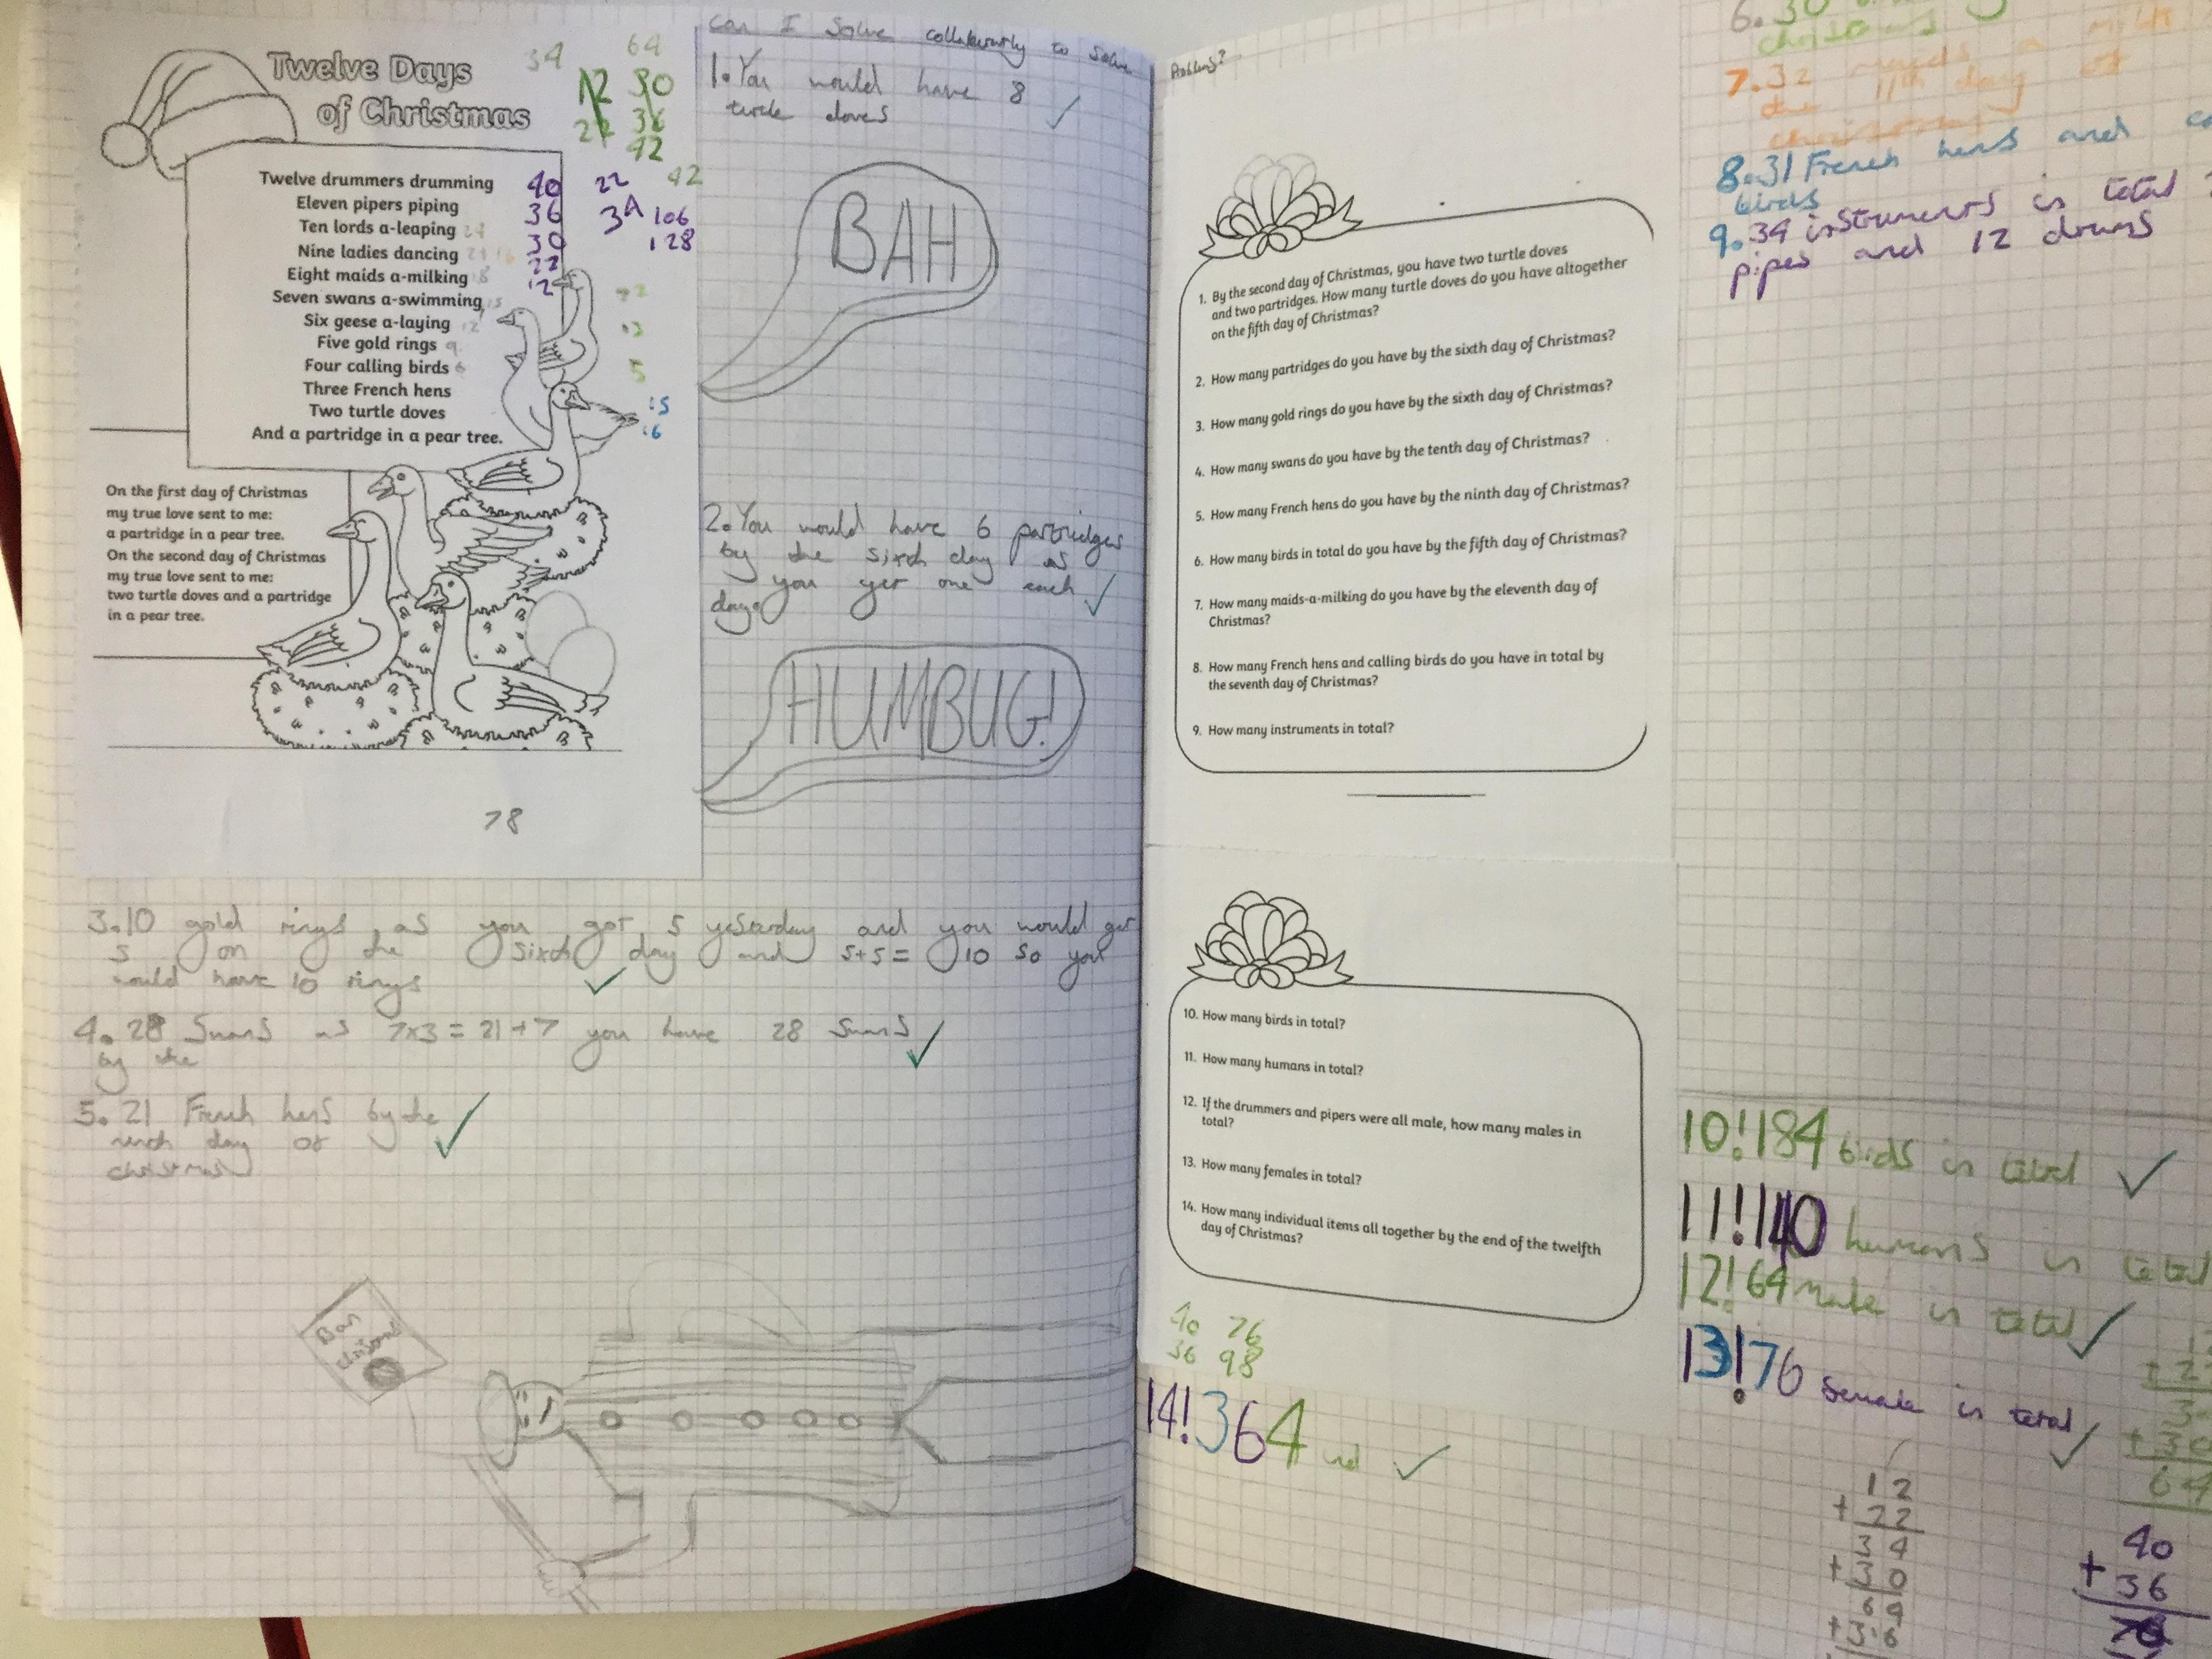 Twelve Days
of Christmas
34
64
12 30
22 36
42
Twelve drummers drumming
Eleven pipers piping
Ten lords a-leaping
Nine ladies dancing
Eight maids a-milking
Seven swans a-swimming
Six geese a-laying
Five gold rings
Four calling birds
Three French hens
Two turtle doves
And a partridge in a pear tree.
40 22 42
36 34 106
30 128
22
12
On the first day of Christmas
my true love sent to me:
a partridge in a pear tree.
On the second day of Christmas
my true love sent to me:
two turtle doves and a partridge
in a pear tree.
78
Can I Solve to solve
1. You would have 8
turtle doves
BAH
2. You would have 6 partridges
by the sixth day as
you get one each
day.
HUMBUG!
3. 10 gold rings as you got 5 yesterday and you would get
5 on the sixth day and 5+5= 10 so you
would have 10 rings
4. 28 Swans as 7x3=21+7 you have 28 Swans
by the
5. 21 French hens by the
day of
christmas
1. By the second day of Christmas, you have two turtle doves
and two partridges. How many turtle doves do you have altogether
on the fifth day of Christmas?
2. How many partridges do you have by the sixth day of Christmas?
3. How many gold rings do you have by the sixth day of Christmas?
4. How many swans do you have by the tenth day of Christmas?
5. How many French hens do you have by the ninth day of Christmas?
6. How many birds in total do you have by the fifth day of Christmas?
7. How many maids-a-milking do you have by the eleventh day of
Christmas?
8. How many French hens and calling birds do you have in total by
the seventh day of Christmas?
9. How many instruments in total?
6. 30
christmas
7. 32 maids a milk
the 11th day of
christmas
8. 31 French hens and
birds
9. 34 instruments in total
pipes and 12 drums
10. How many birds in total?
11. How many humans in total?
12. If the drummers and pipers were all male, how many males in
total?
13. How many females in total?
14. How many individual items all together by the end of the twelfth
day of Christmas?
10! 184 birds in total
11! 140 humans in total
12! 64 male in total
13! 76 female in total
40 76
36 98
14! 364
12
+ 22
34
+ 30
64
+ 36
+ 30
64
40
+ 36
76